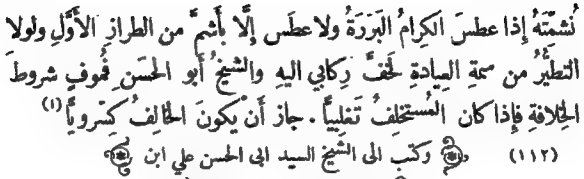 نُشمّتَهُ إذا عطسَ الكِرامُ البَرَرَةُ ولا عطَس إلّا بأَشمَّ من الطرازِ الأوَّلِ ولولا
التطيُّرُ من سمةِ العِيادةِ لخفَّ رِكابي اليهِ والشيخُ أبو الحسَن فُموفٍ شروطَ
الخِلافةِ فإذا كان المُستخلِفُ تَغلِبياً . جاز أن يكونَ الخالِفُ كِسرويّاً (١)
(١١٢) وكتب الى الشيخ السيد ابى الحسن علي ابن